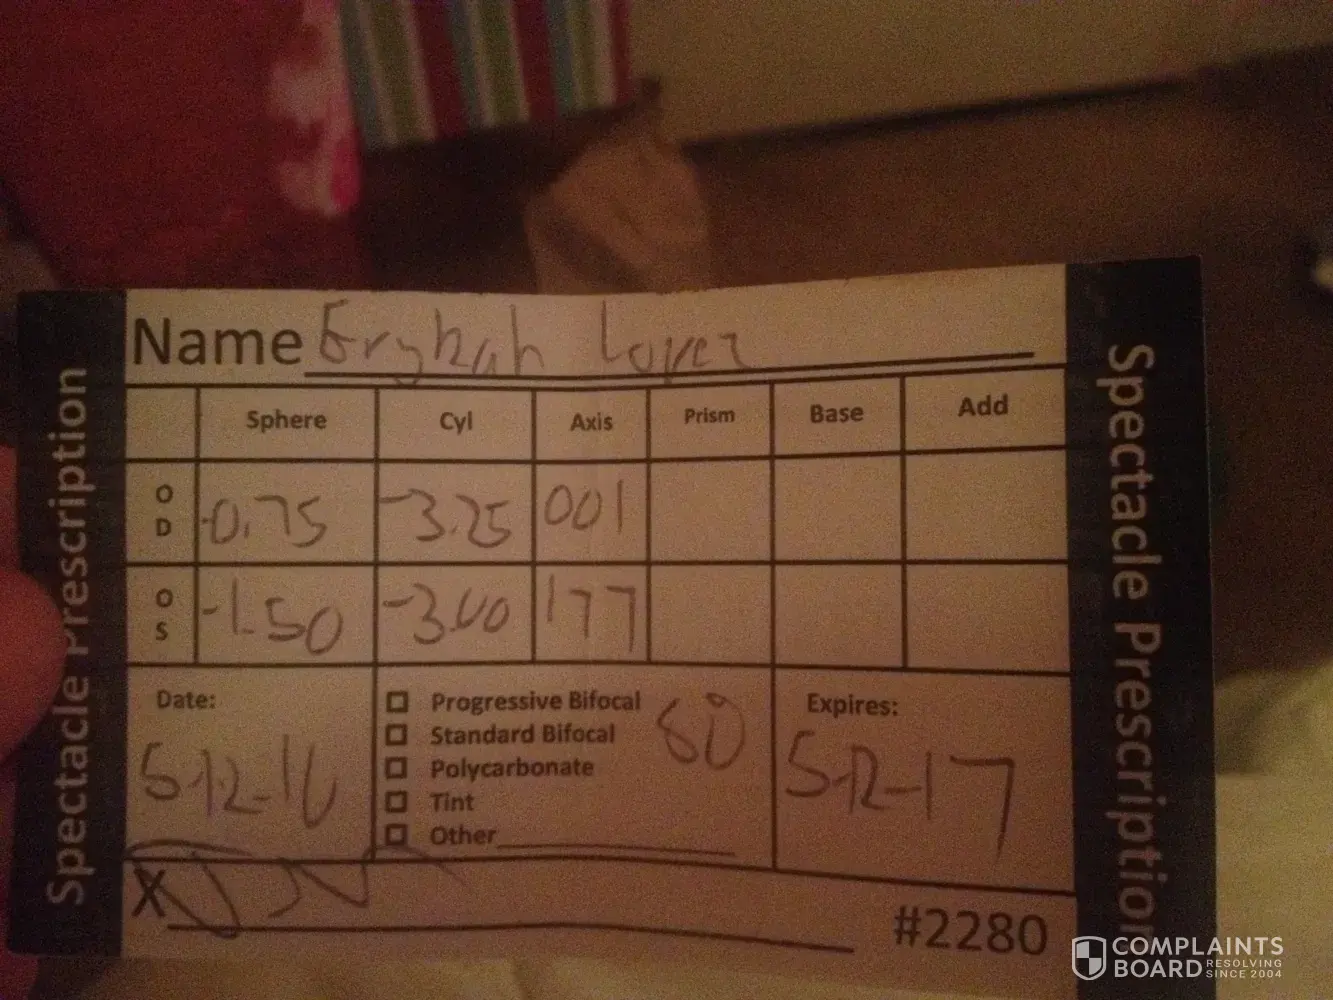 Name Erykah Lopez
Sphere Cyl Axis Prism Base Add
OD -0.75 -3.25 001
OS -1.50 -3.00 177
Date: 5-12-16
Progressive Bifocal
Standard Bifocal
Polycarbonate
Tint
Other
60
Expires: 5-12-17
X
#2280
Spectacle Prescription
Spectacle Prescription
COMPLAINTS
BOARD RESOLVING
SINCE 2004